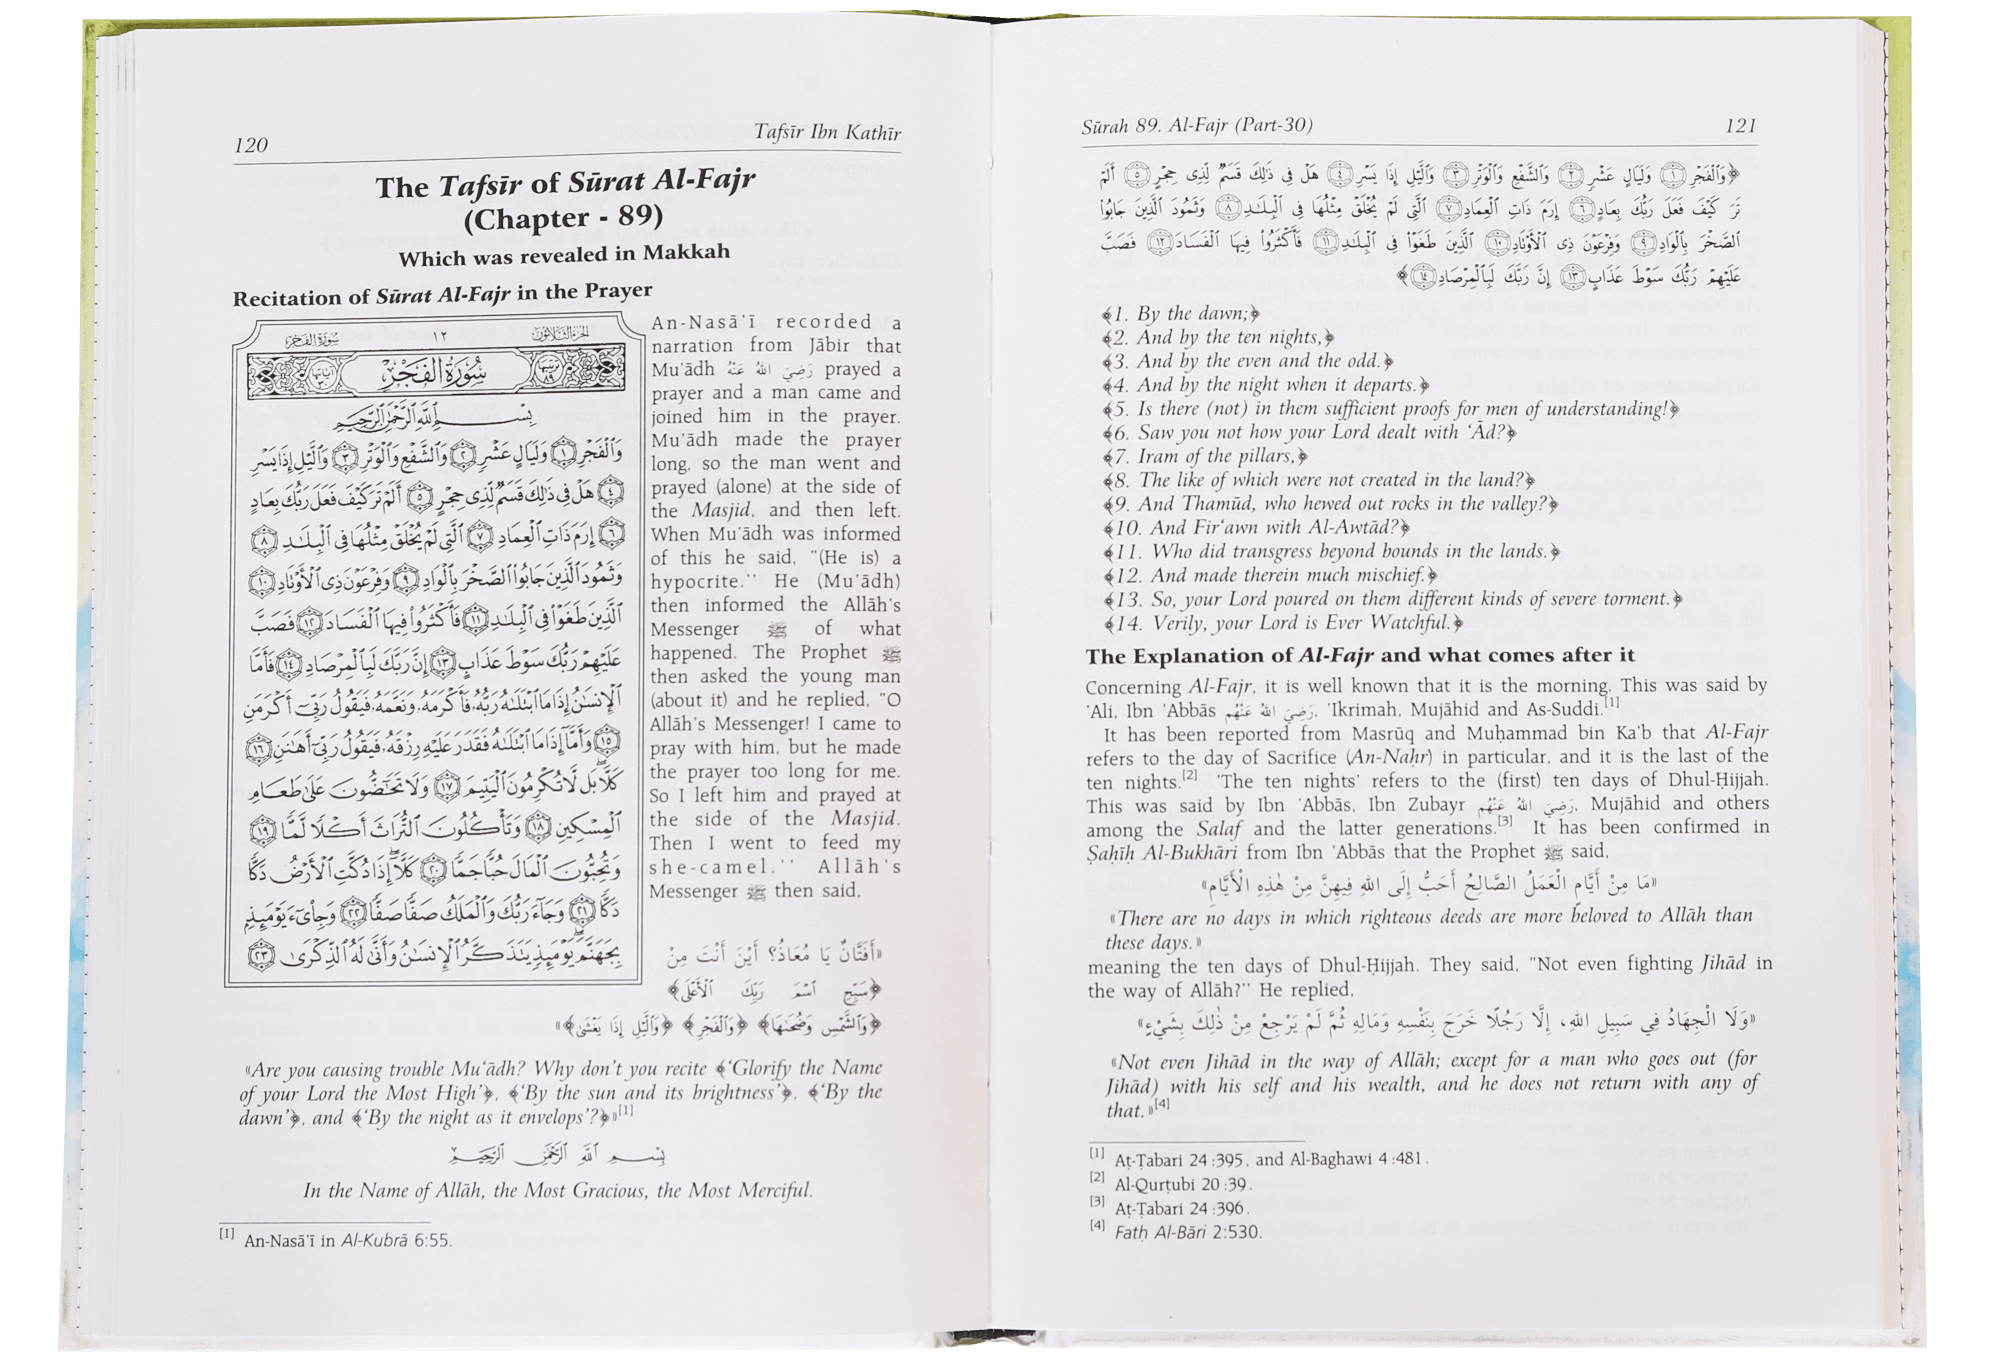 120
Tafsīr Ibn Kathīr
The Tafsīr of Sūrat Al-Fajr
(Chapter - 89)
Which was revealed in Makkah
Recitation of Sūrat Al-Fajr in the Prayer
سُورَةُ الفَجْرِ
١٢
الجزء الثلاثون
سُورَةُ الْفَجْرِ
بِسْمِ اللَّهِ الرَّحْمَٰنِ الرَّحِيمِ
وَالْفَجْرِ ١ وَلَيَالٍ عَشْرٍ ٢ وَالشَّفْعِ وَالْوَتْرِ ٣ وَاللَّيْلِ إِذَا يَسْرِ
٤ هَلْ فِي ذَٰلِكَ قَسَمٌ لِّذِي حِجْرٍ ٥ أَلَمْ تَرَ كَيْفَ فَعَلَ رَبُّكَ بِعَادٍ
٦ إِرَمَ ذَاتِ الْعِمَادِ ٧ الَّتِي لَمْ يُخْلَقْ مِثْلُهَا فِي الْبِلَادِ ٨
وَثَمُودَ الَّذِينَ جَابُوا الصَّخْرَ بِالْوَادِ ٩ وَفِرْعَوْنَ ذِي الْأَوْتَادِ ١٠
الَّذِينَ طَغَوْا فِي الْبِلَادِ ١١ فَأَكْثَرُوا فِيهَا الْفَسَادَ ١٢ فَصَبَّ
عَلَيْهِمْ رَبُّكَ سَوْطَ عَذَابٍ ١٣ إِنَّ رَبَّكَ لَبِالْمِرْصَادِ ١٤ فَأَمَّا
الْإِنسَانُ إِذَا مَا ابْتَلَاهُ رَبُّهُ فَأَكْرَمَهُ وَنَعَّمَهُ فَيَقُولُ رَبِّي أَكْرَمَنِ
١٥ وَأَمَّا إِذَا مَا ابْتَلَاهُ فَقَدَرَ عَلَيْهِ رِزْقَهُ فَيَقُولُ رَبِّي أَهَانَنِ ١٦
كَلَّا بَل لَّا تُكْرِمُونَ الْيَتِيمَ ١٧ وَلَا تَحَاضُّونَ عَلَىٰ طَعَامِ
الْمِسْكِينِ ١٨ وَتَأْكُلُونَ التُّرَاثَ أَكْلًا لَّمًّا ١٩
وَتُحِبُّونَ الْمَالَ حُبًّا جَمًّا ٢٠ كَلَّا إِذَا دُكَّتِ الْأَرْضُ دَكًّا
دَكًّا ٢١ وَجَاءَ رَبُّكَ وَالْمَلَكُ صَفًّا صَفًّا ٢٢ وَجِيءَ يَوْمَئِذٍ
بِجَهَنَّمَ يَوْمَئِذٍ يَتَذَكَّرُ الْإِنسَانُ وَأَنَّىٰ لَهُ الذِّكْرَىٰ ٢٣
An-Nasā'ī recorded a
narration from Jābir that
Mu'ādh رَضِيَ اللهُ عَنْهُ prayed a
prayer and a man came and
joined him in the prayer.
Mu'ādh made the prayer
long, so the man went and
prayed (alone) at the side of
the Masjid, and then left.
When Mu'ādh was informed
of this he said, "(He is) a
hypocrite.'' He (Mu'ādh)
then informed the Allāh's
Messenger ﷺ of what
happened. The Prophet ﷺ
then asked the young man
(about it) and he replied, "O
Allāh's Messenger! I came to
pray with him, but he made
the prayer too long for me.
So I left him and prayed at
the side of the Masjid.
Then I went to feed my
she-camel.'' Allāh's
Messenger ﷺ then said,
«أَفَتَّانٌ يَا مُعَاذُ؟ أَيْنَ أَنْتَ مِنْ
﴿سَبِّحِ اسْمَ رَبِّكَ الْأَعْلَى﴾
﴿وَالشَّمْسِ وَضُحَاهَا﴾ ﴿وَالْفَجْرِ﴾ ﴿وَاللَّيْلِ إِذَا يَغْشَى﴾»
«Are you causing trouble Mu'ādh? Why don't you recite ﴾'Glorify the Name
of your Lord the Most High'﴿, ﴾'By the sun and its brightness'﴿, ﴾'By the
dawn'﴿, and ﴾'By the night as it envelops'?﴿»[1]
بِسْمِ اللَّهِ الرَّحْمَٰنِ الرَّحِيمِ
In the Name of Allāh, the Most Gracious, the Most Merciful.
[1] An-Nasā'ī in Al-Kubrā 6:55.
Sūrah 89. Al-Fajr (Part-30)
121
﴿وَالْفَجْرِ ١ وَلَيَالٍ عَشْرٍ ٢ وَالشَّفْعِ وَالْوَتْرِ ٣ وَاللَّيْلِ إِذَا يَسْرِ ٤ هَلْ فِي ذَٰلِكَ قَسَمٌ لِّذِي حِجْرٍ ٥ أَلَمْ
تَرَ كَيْفَ فَعَلَ رَبُّكَ بِعَادٍ ٦ إِرَمَ ذَاتِ الْعِمَادِ ٧ الَّتِي لَمْ يُخْلَقْ مِثْلُهَا فِي الْبِلَادِ ٨ وَثَمُودَ الَّذِينَ جَابُوا
الصَّخْرَ بِالْوَادِ ٩ وَفِرْعَوْنَ ذِي الْأَوْتَادِ ١٠ الَّذِينَ طَغَوْا فِي الْبِلَادِ ١١ فَأَكْثَرُوا فِيهَا الْفَسَادَ ١٢ فَصَبَّ
عَلَيْهِمْ رَبُّكَ سَوْطَ عَذَابٍ ١٣ إِنَّ رَبَّكَ لَبِالْمِرْصَادِ ١٤﴾
﴾1. By the dawn;﴿
﴾2. And by the ten nights,﴿
﴾3. And by the even and the odd.﴿
﴾4. And by the night when it departs.﴿
﴾5. Is there (not) in them sufficient proofs for men of understanding!﴿
﴾6. Saw you not how your Lord dealt with 'Ād?﴿
﴾7. Iram of the pillars,﴿
﴾8. The like of which were not created in the land?﴿
﴾9. And Thamūd, who hewed out rocks in the valley?﴿
﴾10. And Fir'awn with Al-Awtād?﴿
﴾11. Who did transgress beyond bounds in the lands.﴿
﴾12. And made therein much mischief.﴿
﴾13. So, your Lord poured on them different kinds of severe torment.﴿
﴾14. Verily, your Lord is Ever Watchful.﴿
The Explanation of Al-Fajr and what comes after it
Concerning Al-Fajr, it is well known that it is the morning. This was said by
'Ali, Ibn 'Abbās رَضِيَ اللهُ عَنْهُم, 'Ikrimah, Mujāhid and As-Suddi.[1]
It has been reported from Masrūq and Muḥammad bin Ka'b that Al-Fajr
refers to the day of Sacrifice (An-Naḥr) in particular, and it is the last of the
ten nights.[2] 'The ten nights' refers to the (first) ten days of Dhul-Ḥijjah.
This was said by Ibn 'Abbās, Ibn Zubayr رَضِيَ اللهُ عَنْهُم, Mujāhid and others
among the Salaf and the latter generations.[3] It has been confirmed in
Ṣaḥīḥ Al-Bukhāri from Ibn 'Abbās that the Prophet ﷺ said,
«مَا مِنْ أَيَّامٍ الْعَمَلُ الصَّالِحُ أَحَبُّ إِلَى اللهِ فِيهِنَّ مِنْ هٰذِهِ الْأَيَّامِ»
«There are no days in which righteous deeds are more beloved to Allāh than
these days.»
meaning the ten days of Dhul-Ḥijjah. They said, "Not even fighting Jihād in
the way of Allāh?'' He replied,
«وَلَا الْجِهَادُ فِي سَبِيلِ اللهِ، إِلَّا رَجُلًا خَرَجَ بِنَفْسِهِ وَمَالِهِ ثُمَّ لَمْ يَرْجِعْ مِنْ ذٰلِكَ بِشَيْءٍ»
«Not even Jihād in the way of Allāh; except for a man who goes out (for
Jihād) with his self and his wealth, and he does not return with any of
that.»[4]
[1] Aṭ-Ṭabari 24:395, and Al-Baghawi 4:481.
[2] Al-Qurṭubi 20:39.
[3] Aṭ-Ṭabari 24:396.
[4] Fatḥ Al-Bāri 2:530.